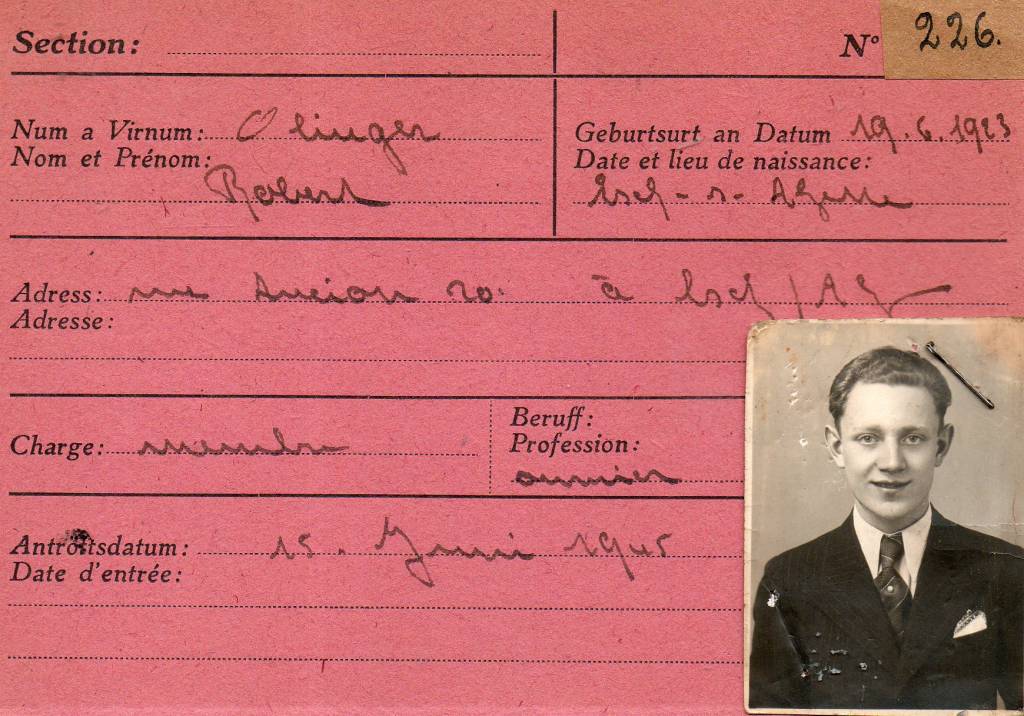 Section:
N° 226.
Num a Virnum: Olinger
Nom et Prénom:
Robert
Geburtsurt an Datum 19.6.1923
Date et lieu de naissance:
Esch-s-Alzette
Adress: rue 20. à Esch/Alz
Adresse:
Charge: membre
Beruff:
Profession:
ouvrier
Antrottsdatum: 15. Juni 1945
Date d'entrée: